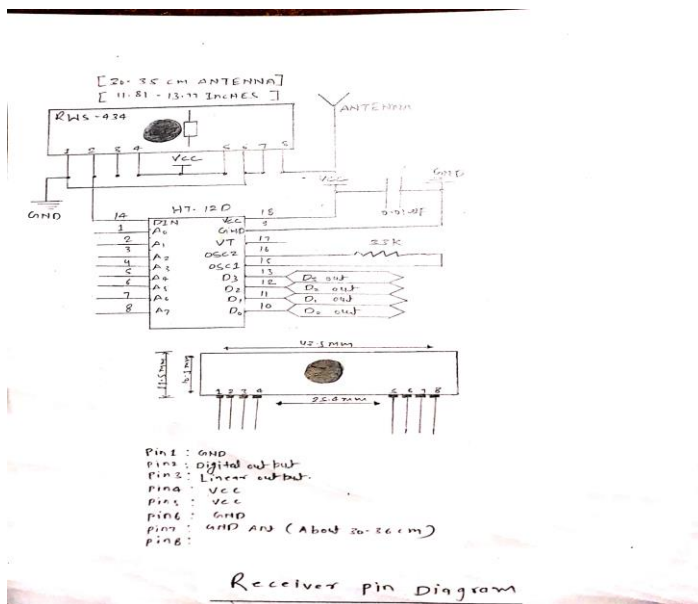 [ 30-35 cm ANTENNA ]
[ 11.81 - 13.77 INCHES ]
RWS-434
ANTENNA
1 2 3 4 5 6 7 8
VCC
VCC
GND
GND
HT-12D
14 DIN VCC 18
1 A0 GND 9
2 A1 VT 17
3 A2 OSC2 16
4 A3 OSC1 15
5 A4 D3 13 D3 out
6 A5 D2 12 D2 out
7 A6 D1 11 D1 out
8 A7 D0 10 D0 out
33K
1 2 3 4 5 6 7 8
Pin1 : GND
Pin2 : Digital output
Pin3 : Linear output.
Pin4 : VCC
Pin5 : VCC
Pin6 : GND
Pin7 : GND Ant (About 30-36 cm)
Pin8 :
Receiver Pin Diagram